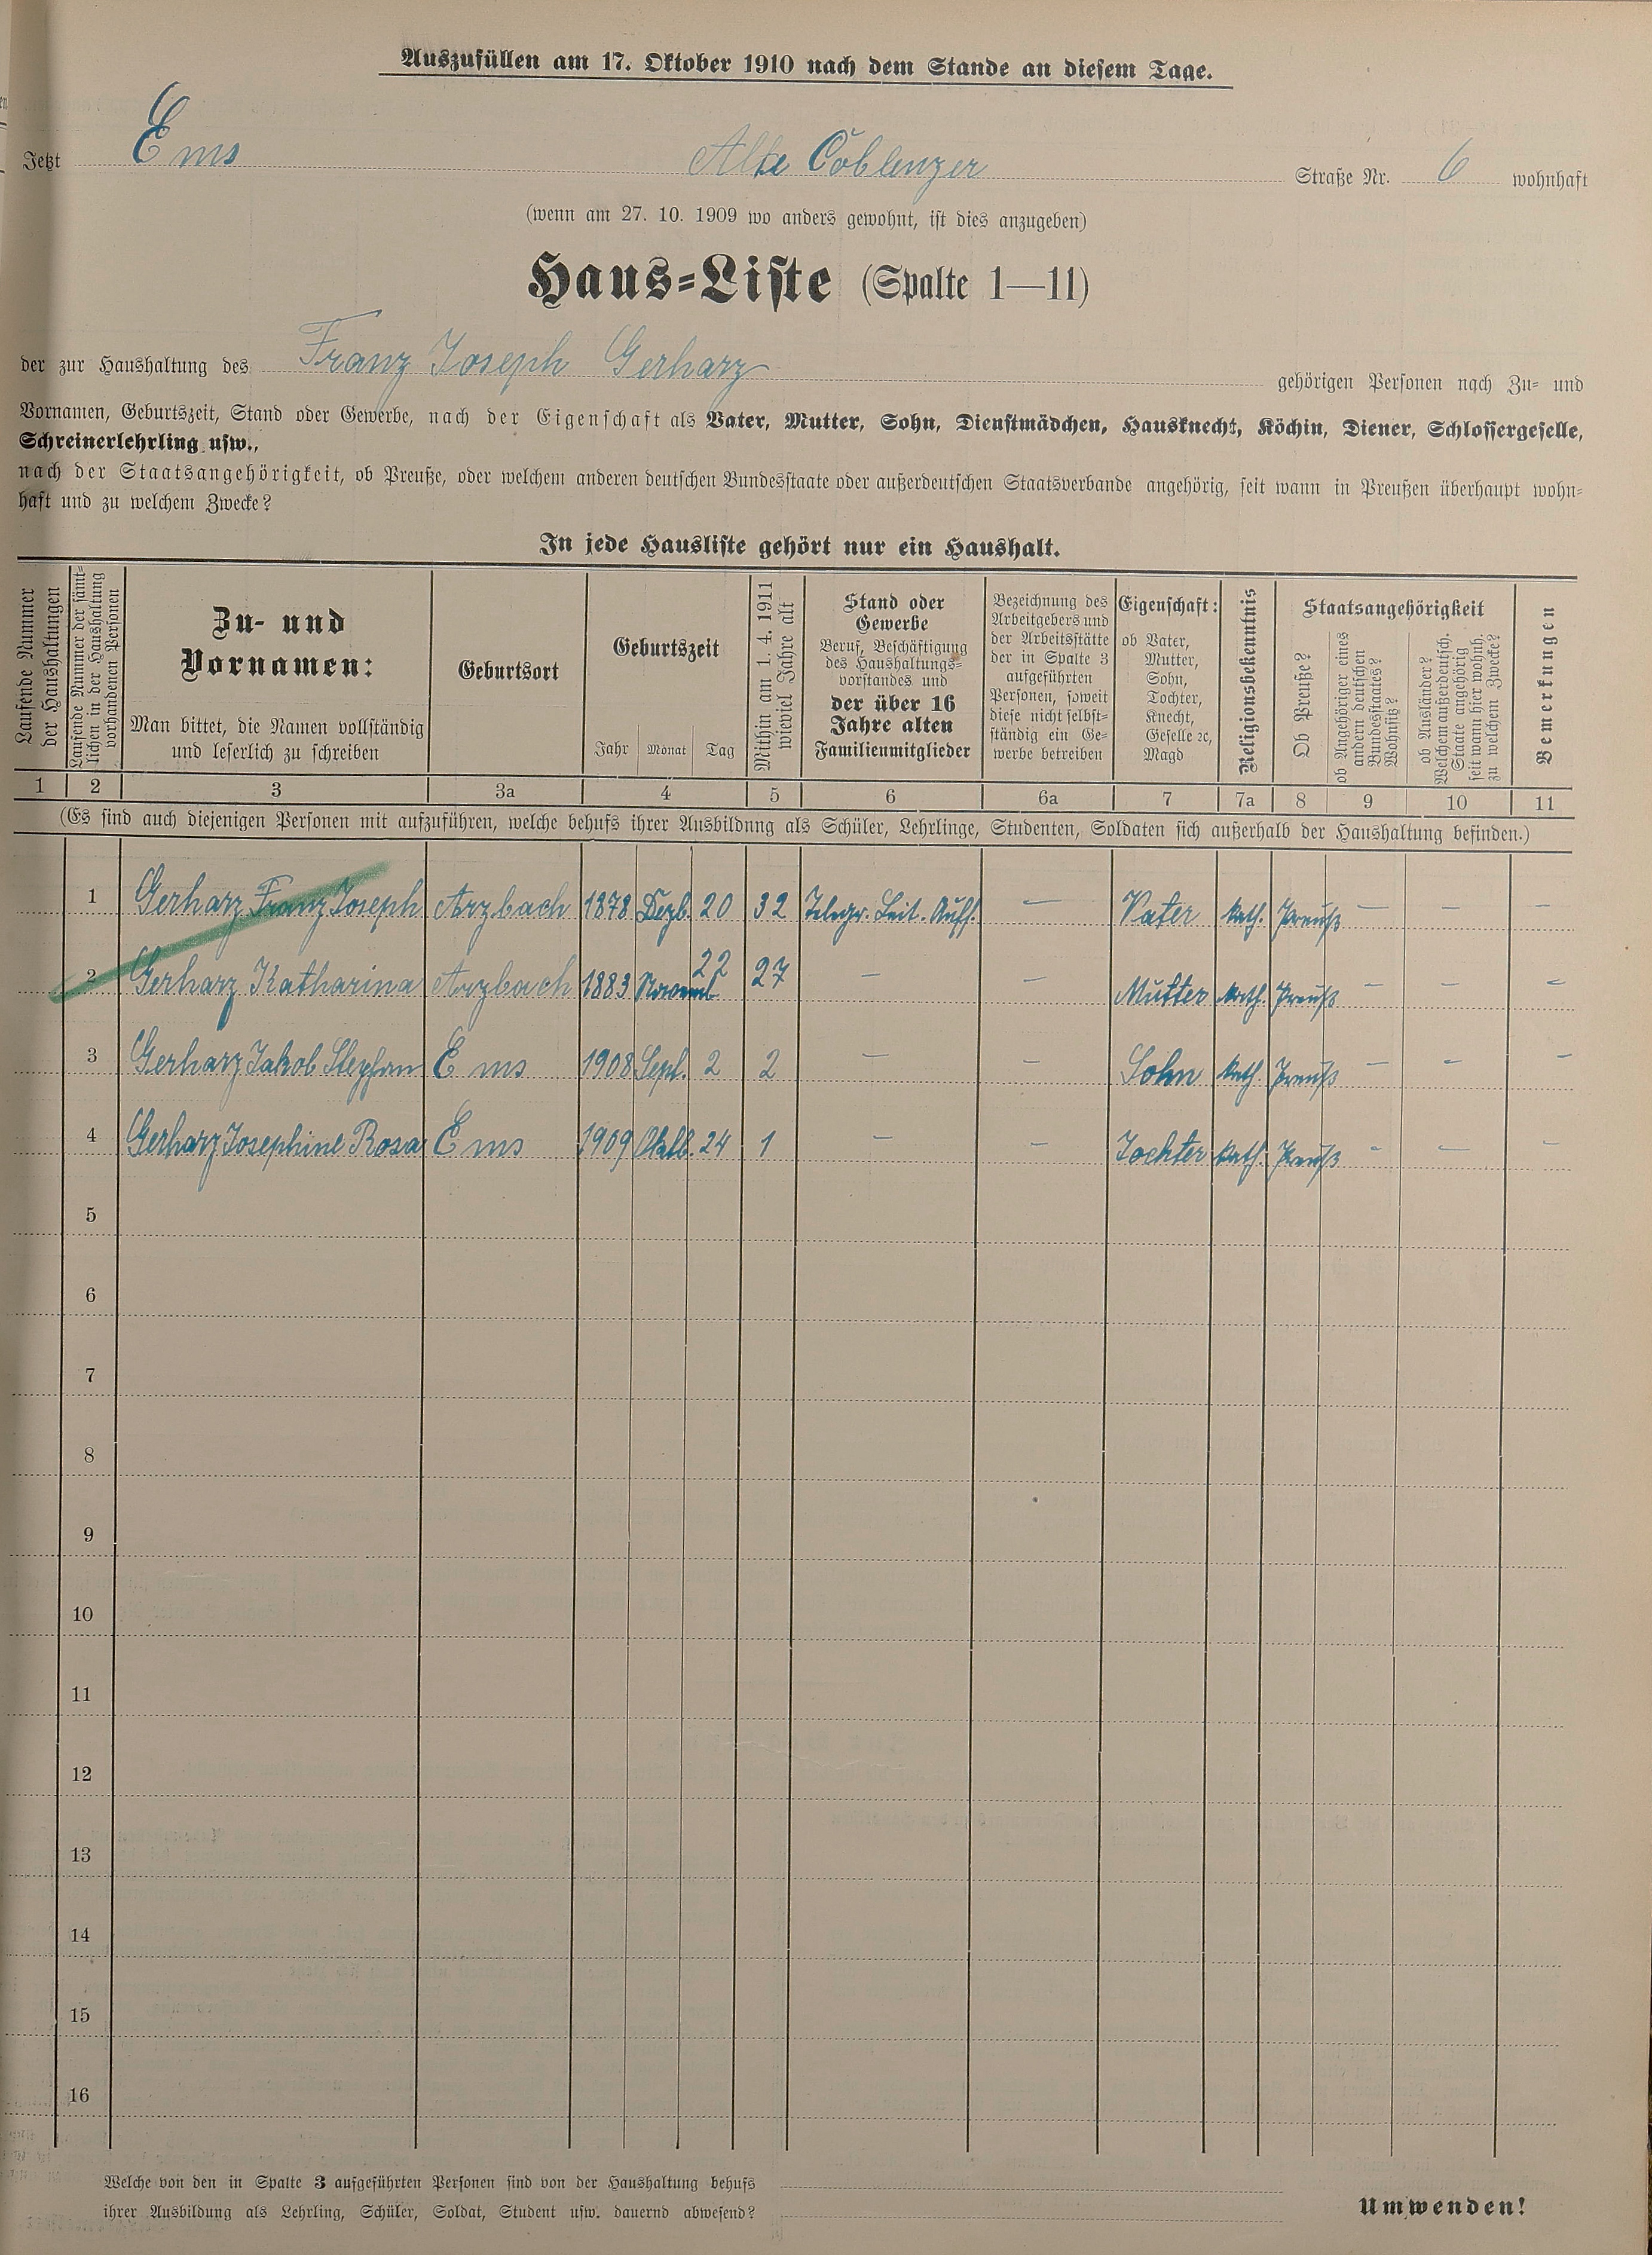 Auszufüllen am 17. Oktober 1910 nach dem Stande an diesem Tage.
Jetzt Ems Alte Coblenzer Straße Nr. 6 wohnhaft
(wenn am 27. 10. 1909 wo anders gewohnt, ist dies anzugeben)
Haus-Liste (Spalte 1—11)
der zur Haushaltung des Franz Joseph Gerharz gehörigen Personen nach Zu- und
Vornamen, Geburtszeit, Stand oder Gewerbe, nach der Eigenschaft als Vater, Mutter, Sohn, Dienstmädchen, Hausknecht, Köchin, Diener, Schlossergeselle,
Schreinerlehrling usw.,
nach der Staatsangehörigkeit, ob Preuße, oder welchem anderen deutschen Bundesstaate oder außerdeutschen Staatsverbande angehörig, seit wann in Preußen überhaupt wohn-
haft und zu welchem Zwecke?
In jede Hausliste gehört nur ein Haushalt.
Laufende Nummer
der Haushaltungen
Laufende Nummer der sämt-
lichen in der Haushaltung
vorhandenen Personen
Zu- und
Vornamen:
Man bittet, die Namen vollständig
und leserlich zu schreiben
Geburtsort
Geburtszeit
Jahr Monat Tag
Mithin am 1. 4. 1911
wieviel Jahre alt
Stand oder
Gewerbe
Beruf, Beschäftigung
des Haushaltungs-
vorstandes und
der über 16
Jahre alten
Familienmitglieder
Bezeichnung des
Arbeitgebers und
der Arbeitsstätte
der in Spalte 3
aufgeführten
Personen, soweit
diese nicht selbst-
ständig ein Ge-
werbe betreiben
Eigenschaft:
ob Vater,
Mutter,
Sohn,
Tochter,
Knecht,
Geselle ec,
Magd
Religionsbekenntnis
Staatsangehörigkeit
Ob Preuße?
ob Angehöriger eines
andern deutschen
Bundesstaates?
Wohnsitz?
ob Ausländer?
Welchem außerdeutsch.
Staate angehörig
seit wann hier wohnh.
zu welchem Zwecke?
Bemerkungen
1 2 3 3a 4 5 6 6a 7 7a 8 9 10 11
(Es sind auch diejenigen Personen mit aufzuführen, welche behufs ihrer Ausbildung als Schüler, Lehrlinge, Studenten, Soldaten sich außerhalb der Haushaltung befinden.)
1 Gerharz Franz Joseph Arzbach 1878 Dezb. 20 32 Telegr. Leit. Auff. — Vater Kath. Preuß — — —
2 Gerharz Katharina Arzbach 1883 Novemb 22 27 — — Mutter Kath. Preuß — — —
3 Gerharz Jakob Stephan Ems 1908 Sept. 2 2 — — Sohn Kath. Preuß — — —
4 Gerharz Josephine Rosa Ems 1909 Oktb. 24 1 — — Tochter Kath. Preuß — — —
5
6
7
8
9
10
11
12
13
14
15
16
Welche von den in Spalte 3 aufgeführten Personen sind von der Haushaltung behufs
ihrer Ausbildung als Lehrling, Schüler, Soldat, Student usw. dauernd abwesend?
Umwenden!